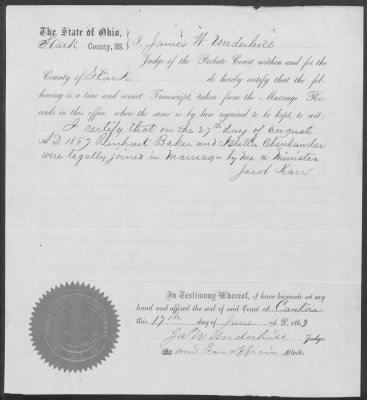 The State of Ohio,
Stark County, SS. } I, James W Underhill
Judge of the Probate Court within and for the
County of Stark do hereby certify that the fol-
lowing is a true and correct Transcript, taken from the Marriage Re-
cords in this office, where the same is by law required to be kept, to wit:
I certify that on the 27th day of August
AD 1857 Rinhart Baker and Oberlander
were legally joined in Marriage by me a Minister
Jacob Karr
In Testimony Whereof, I have hereunto set my
hand and affixed the seal of said Court at Canton
this 17th day of June A. D. 1863
Jas W Underhill Judge,
and Ex officio Clerk.